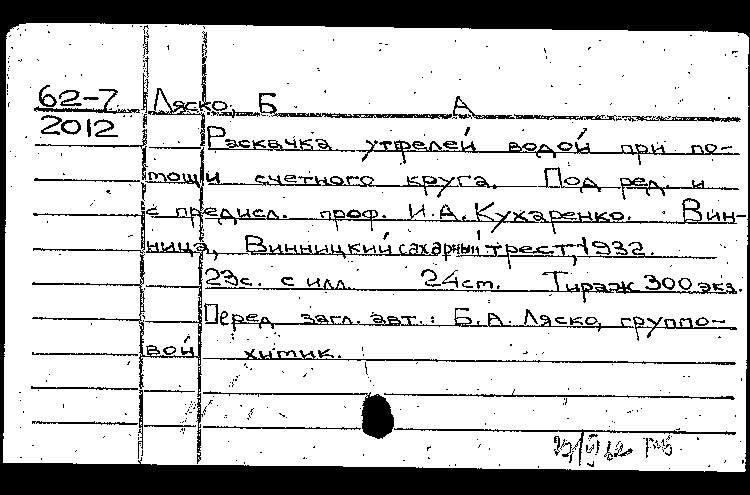 62-7 Ляско, Б А
2012
Раскачка утфелей водой при по-
тощи счетного круга. Под ред. и
с предисл. проф. И.А. Кухаренко. Вин-
ница, Винницкий сахарный трест, 1932.
23с. с илл. 24ст. Тираж 300 экз.
Перед загл. авт.: Б.А. Ляско, группо-
вой хитик.